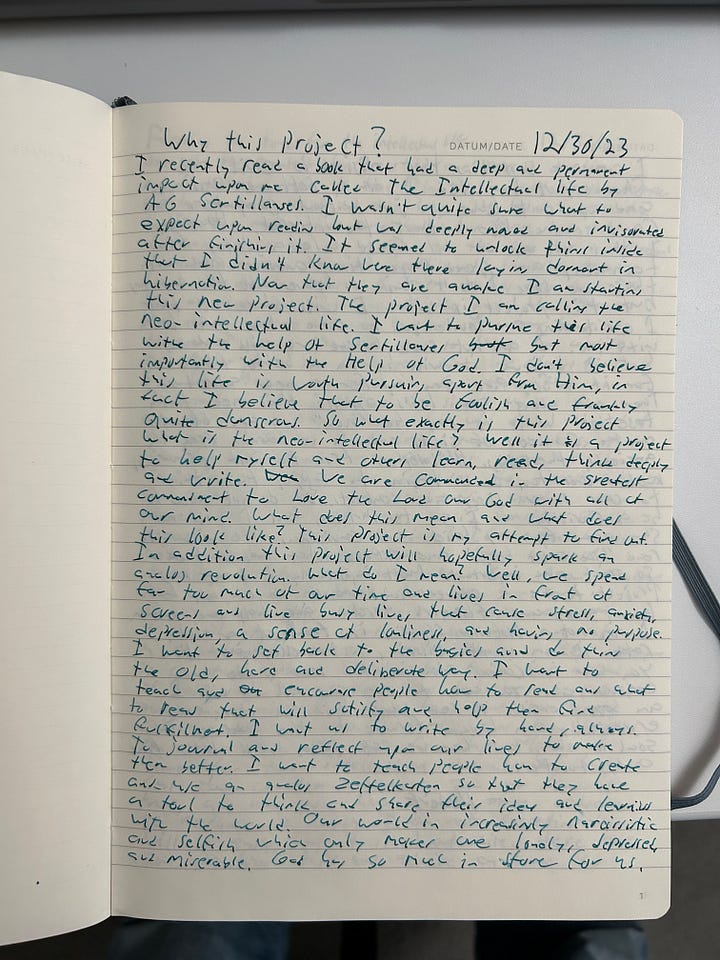 Why this Project?
DATUM/DATE 12/30/23
I recently read a book that had a deep and permanent
impact upon me called The Intellectual life by
AG Sertillanges. I wasn't quite sure what to
expect upon reading but was deeply moved and invigorated
after finishing it. It seemed to unlock things inside
that I didn't know were there laying dormant in
hibernation. Now that they are awake I am starting
this new project. The project I am calling the
neo-intellectual life. I want to pursue this life
withe the help of Sertillanges but most
importantly with the Help of God. I don't believe
this life is worth pursuing apart from Him, in
fact I believe that to be foolish and frankly
quite dangerous. So what exactly is this project
What is the neo-intellectual life? Well it is a project
to help myself and others learn, read, think deeply
and write. We are commanded in the greatest
commandment to Love the Lord our God with all of
our mind. What does this mean and what does
this look like? This project is my attempt to find out.
In addition this project will hopefully spark an
analog revolution. What do I mean? Well, we spend
far too much of our time and lives in front of
screens and live busy lives that cause stress, anxiety,
depression, a sense of lonliness, and having no purpose.
I want to get back to the basics and do things
the old, hard and deliberate way. I want to
teach and encourage people how to read and what
to read that will satisfy and help them find
fulfilment. I want us to write by hand, always.
To journal and reflect upon our lives to make
them better. I want to teach people how to create
and use an analog Zettelkasten so that they have
a tool to think and share their ideas and learnings
with the world. Our world in increasingly narcissistic
and selfish which only makes one lonely, depressed,
and miserable. God has so much in store for us.
1